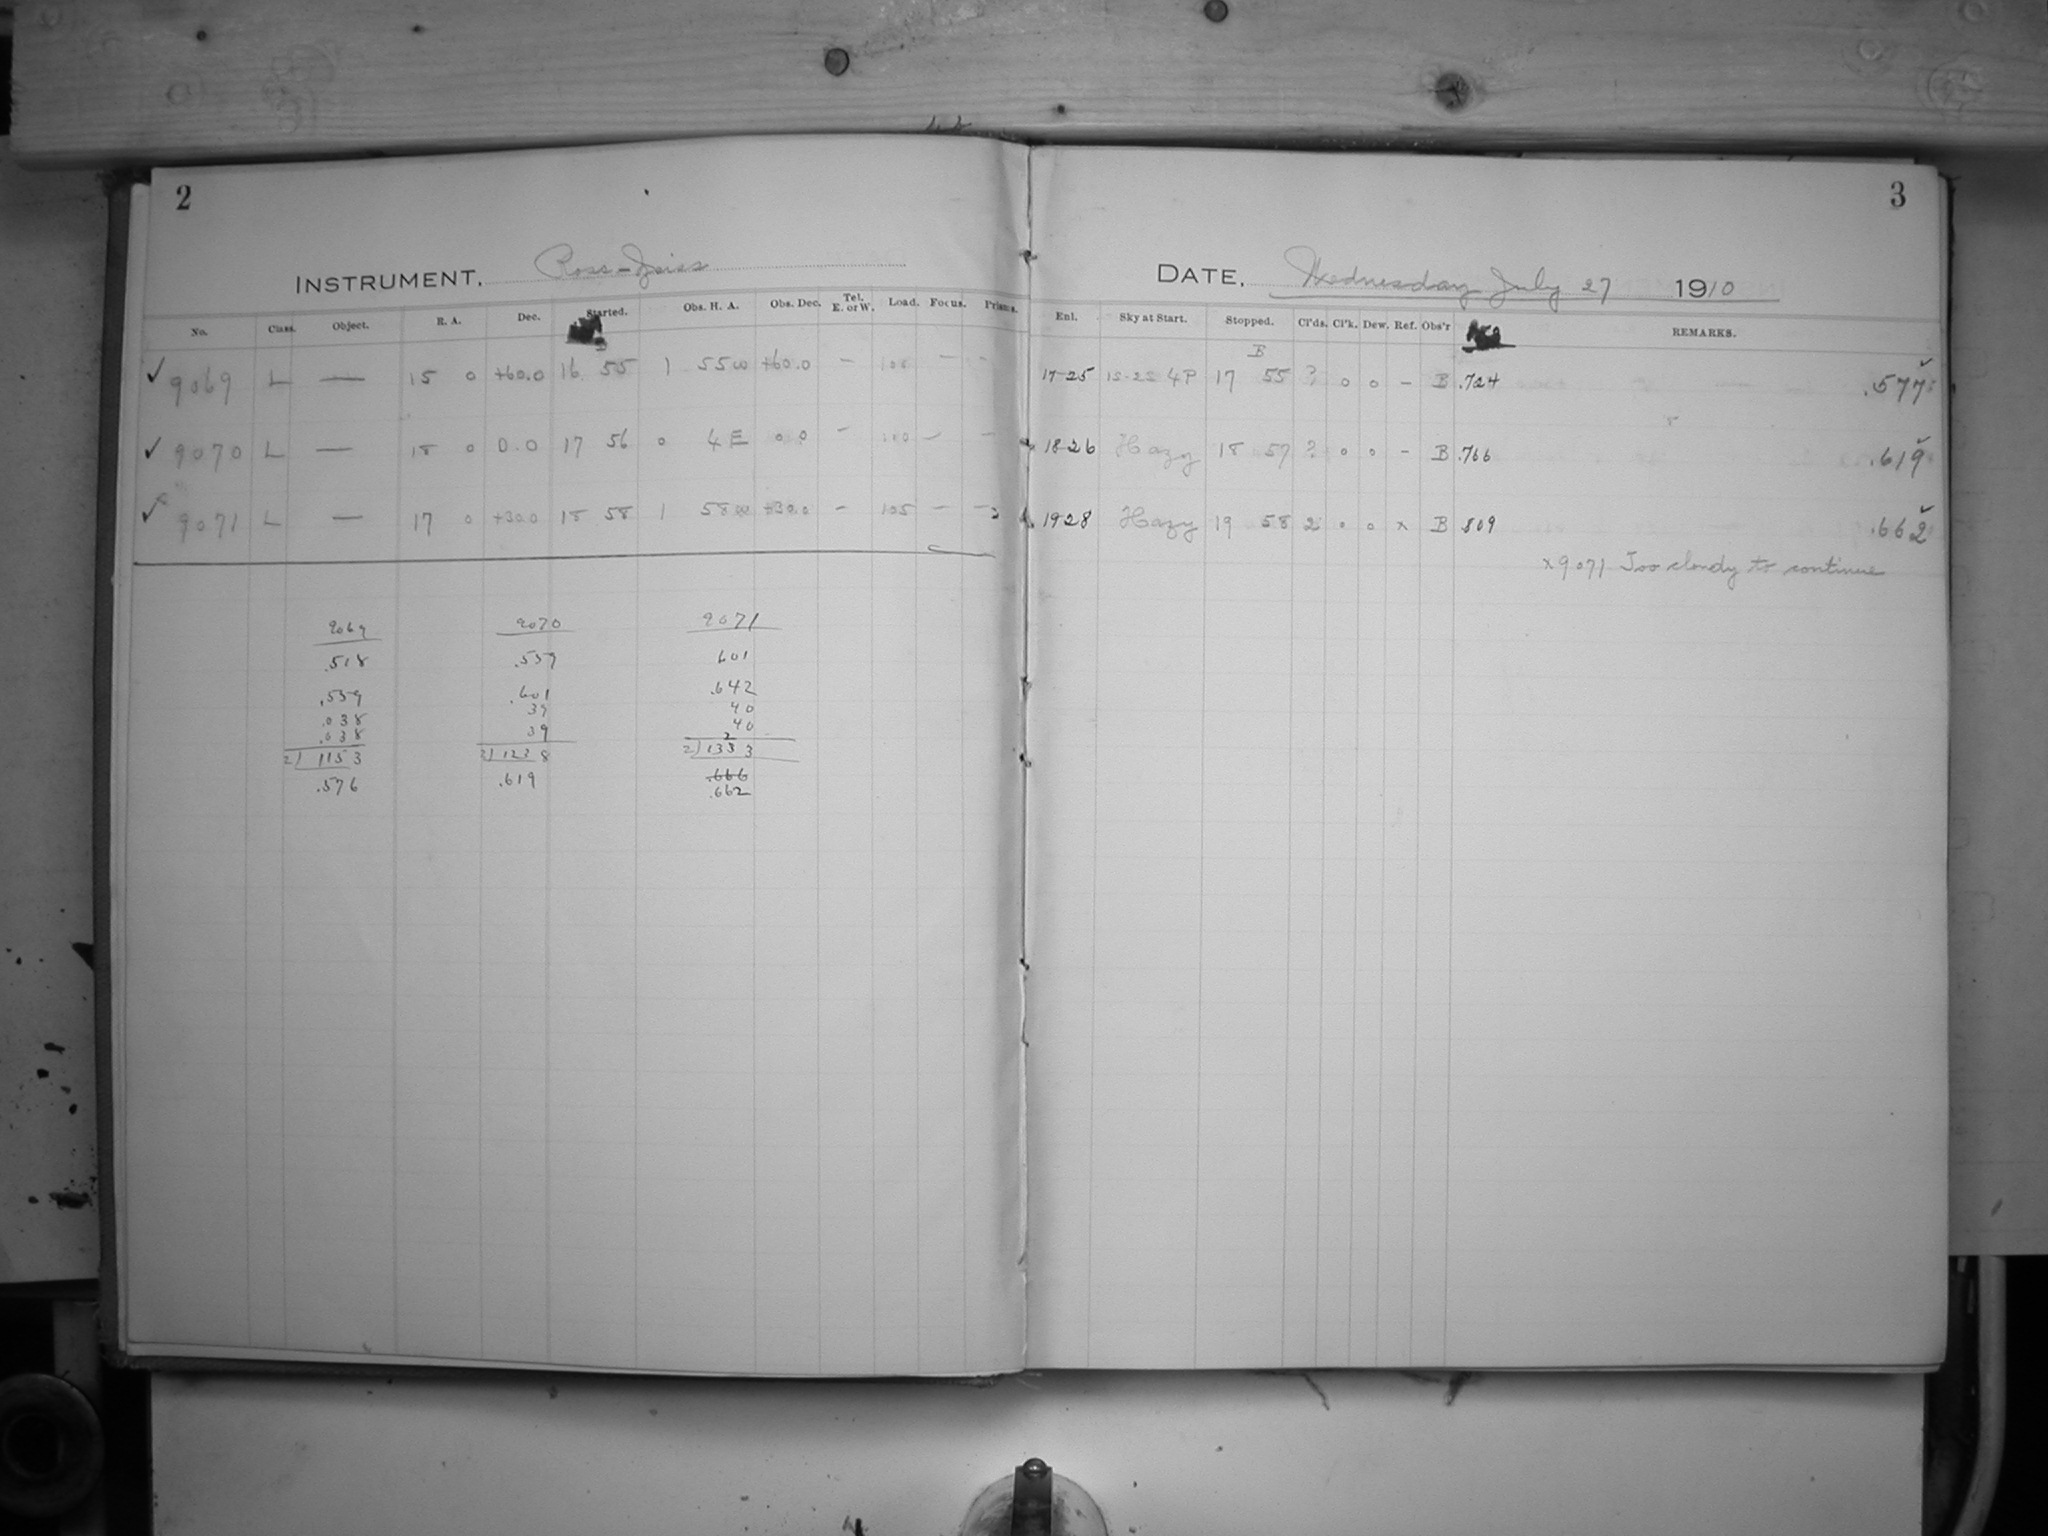 2
INSTRUMENT. Ross-Zeiss
No. Class. Object. R. A. Dec. Started. Obs. H. A. Obs. Dec. Tel. E. or W. Load. Focus. Prisms.
✓ 9069 L — 15 0 +60.0 16 55 1 55 W +60.0 – – –
✓ 9070 L — 18 0 0.0 17 56 0 4 E 0.0 – – –
✓ 9071 L — 17 0 +30.0 18 58 1 58 W +30.0 – 105 – –
9069 9070 9071
.518 .559 601
.559 .601 .642
.038 39 40
.038 39 40
2) 1153 2) 1238 2) 1333
.576 .619 .666
.662
3
DATE. Wednesday July 27 1910
Enl. Sky at Start. Stopped. Cl'ds. Cl'k. Dew. Ref. Obs'r REMARKS.
B
17-25 1S-2S 4P 17 55 ? 0 0 – B .724 .577
18-26 Hazy 18 57 ? 0 0 – B .766 .619
19-28 Hazy 19 58 2 0 0 x B 809 .662
x 9071 Too cloudy to continue